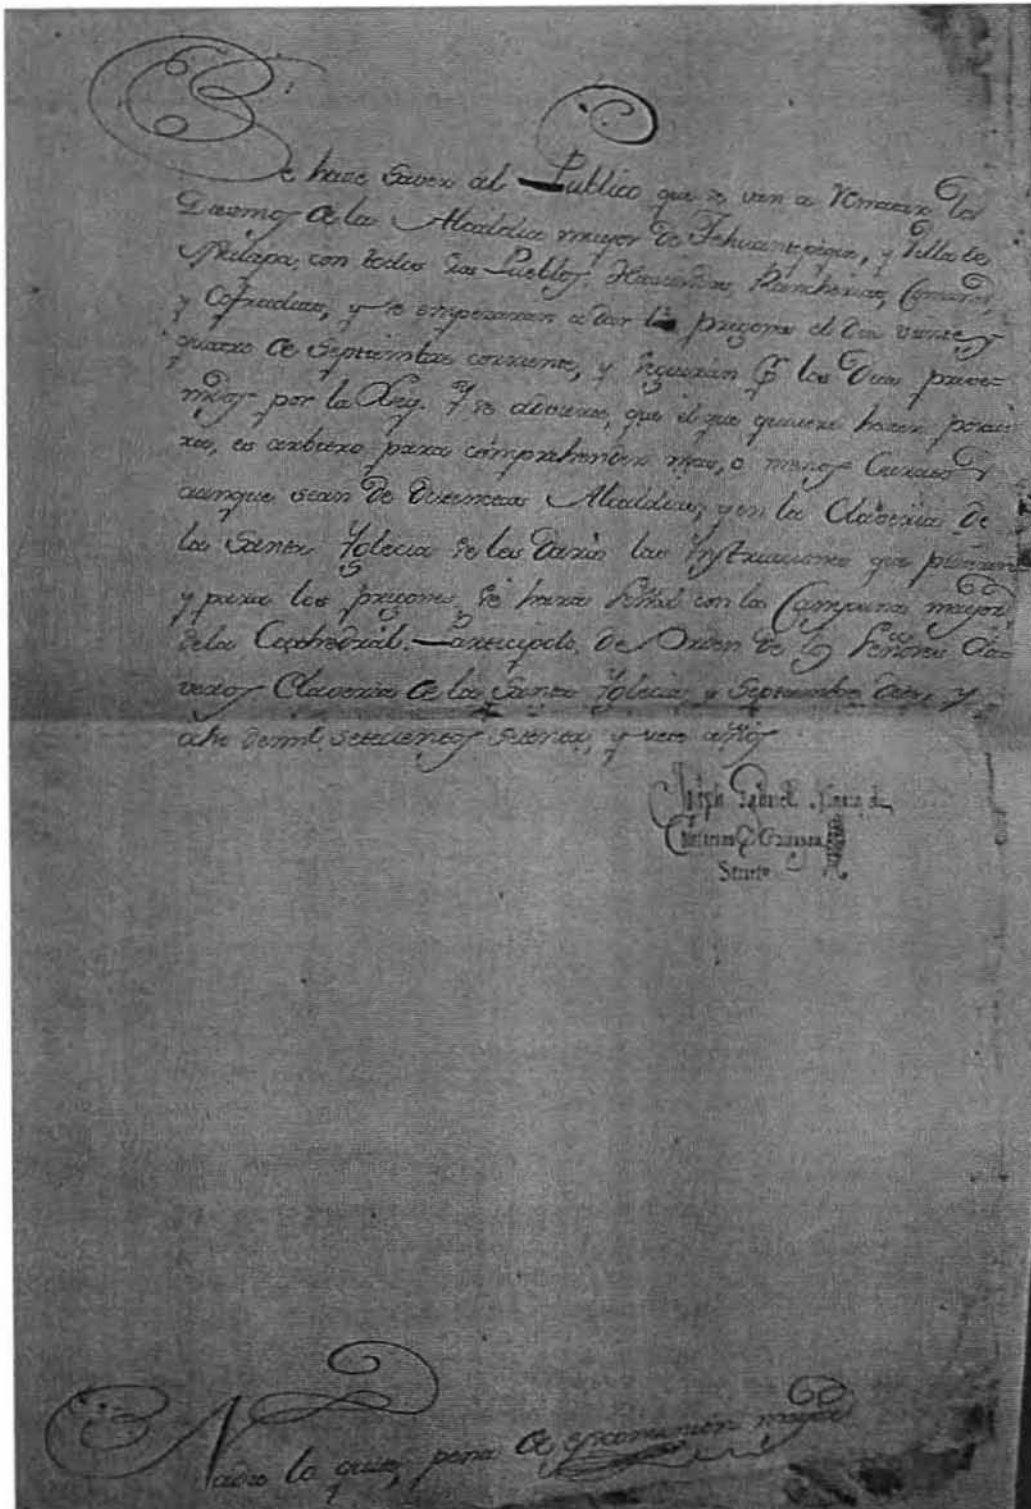 Se hace saver al Publico que se van a rematar los
Diesmos de la Alcaldia mayor de Tehuantepeque, y Villa de
Xalapa, con todos sus Pueblos, Haciendas, Rancherias, Comunes,
y Cofradias, y se empezaran a dar los pregones el dia veinte y
quatro de Septiembre corriente, y seguirán pr los dias preve-
nidos por la Ley. Y se advierte, que el que quisiere hacer postu-
ra, es arbitro para comprehender mas, o menos Curatos
aunque sean de diversas Alcaldias, y en la Claveria de
la Santa Yglecia se les darán las Ynstruciones que pidieren
y para los pregones, se hara señal con la Campana mayor
de la Cathedral. Participolo, de Orden de los Señores Cla-
veros Claveria de la Santa Yglecia, y Septiembre diez y
ocho de mil, setecientos setenta, y siete años
Joseph Gabriel
Secreto
Nadie lo quite, pena de excomunión mayor